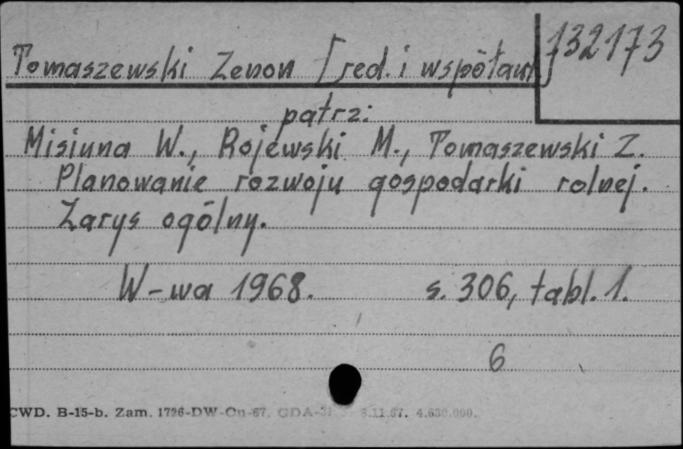 Tomaszewski Zenon [red. i współaut.]
132173
patrz:
Misiuna W., Rojewski M., Tomaszewski Z.
Planowanie rozwoju gospodarki rolnej.
Zarys ogólny.
W-wa 1968. s. 306, tabl. 1.
6
CWD. B-15-b. Zam. 1726-DW-On-67. GDA- 8.11.67. 4.630.000.